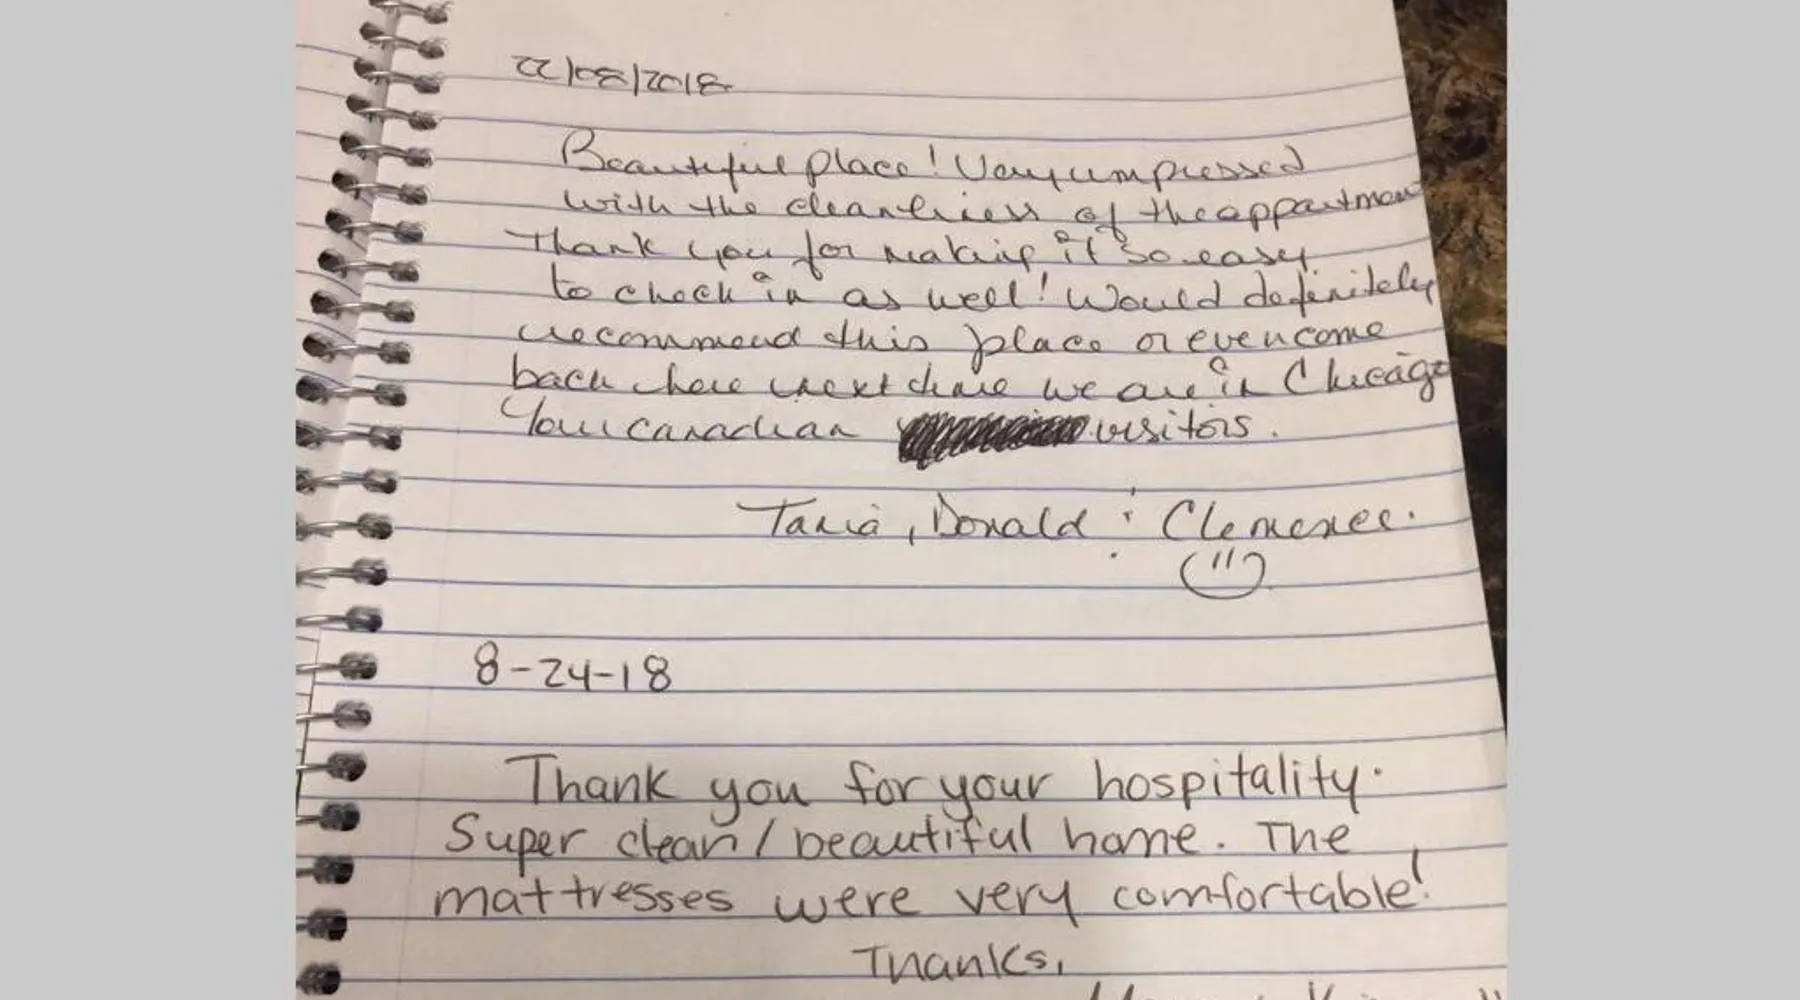 22/08/2018
Beautiful place! Very impressed
with the cleanliness of the appartment
Thank you for making it so easy
to check in as well! Would definitely
recommend this place or even come
back here next time we are in Chicago
Your canadian visitors.
Tania, Donald & Clemence.
8-24-18
Thank you for your hospitality.
Super clean/beautiful home. The
mattresses were very comfortable!
Thanks,